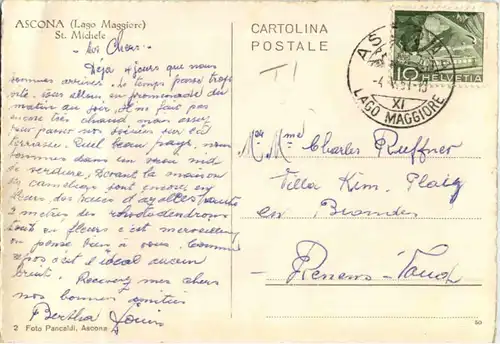 ASCONA (Lago Maggiore)
St. Michele
Mes Chers
Déja 4 jours que nous
sommes arrivés. Le temps passe trop
vite. Nous allons en promenade du
matin au soir, il ne fait pas
encore très chaud mais assez
pour passer nos soirées sur la
terrasse. Quel beau pays, nous
sommes dans un vrai nid
de verdure, devant la maison
les camelias sont encore en
fleurs, des haies d'azalées hautes
2 mètres des rhododendrons
tout en fleurs c'est merveilleux
on pense bien à vous. Comme
repos c'est l'idéal aucun
bruit. Recevez mes chers
nos bonnes amitiés
Bertha Louis
2 Foto Pancaldi, Ascona
CARTOLINA
POSTALE
T1
10 HELVETIA
XI
LAGO MAGGIORE
Mme Charles Ruffner
Villa Kim. Platz
en
Renens-Vaud
50